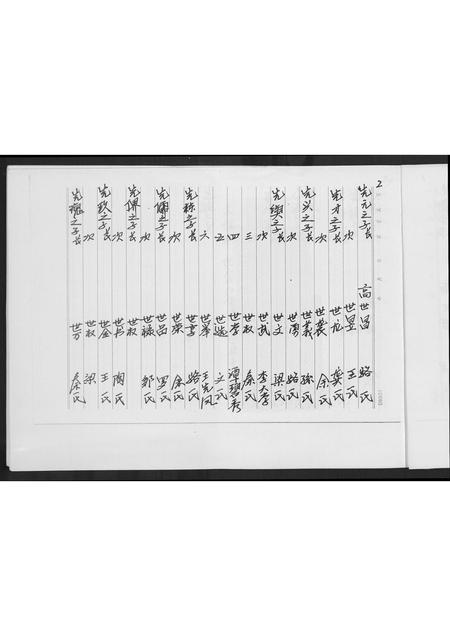 2
先元之子长 高世昌 路氏
次 世昱 王氏
先才之子长 世龙 龚氏
次 世裘 余氏
先义之子长 世义 孙氏
次 世勇 路氏
先舆之子长 世文 梁氏
次 世武 李大孝
三 世权 余氏
四 世孝 谭碧秀
五 世 文氏
六 世举 王光凤
先称之子长 世享 路氏
次 世荣 余氏
先 之子长 世品 罗氏
次 世禄 邹氏
先佩之子长 世权
次 世兵 陶氏
先致之子长 世金 王氏
次 世权 梁
先 之子长 世万 余氏